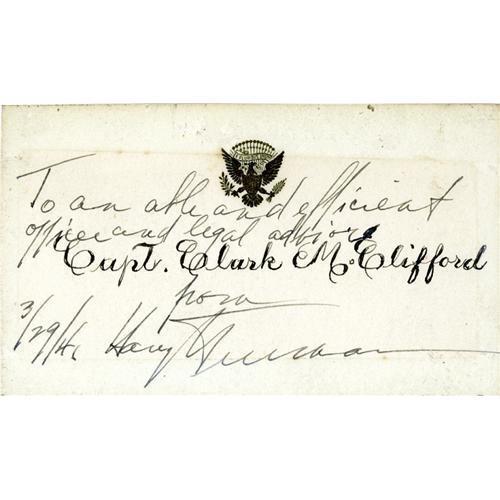 To an able and efficient
officer and legal advisor
Capt. Clark M. Clifford
from
3/29/46 Harry Truman